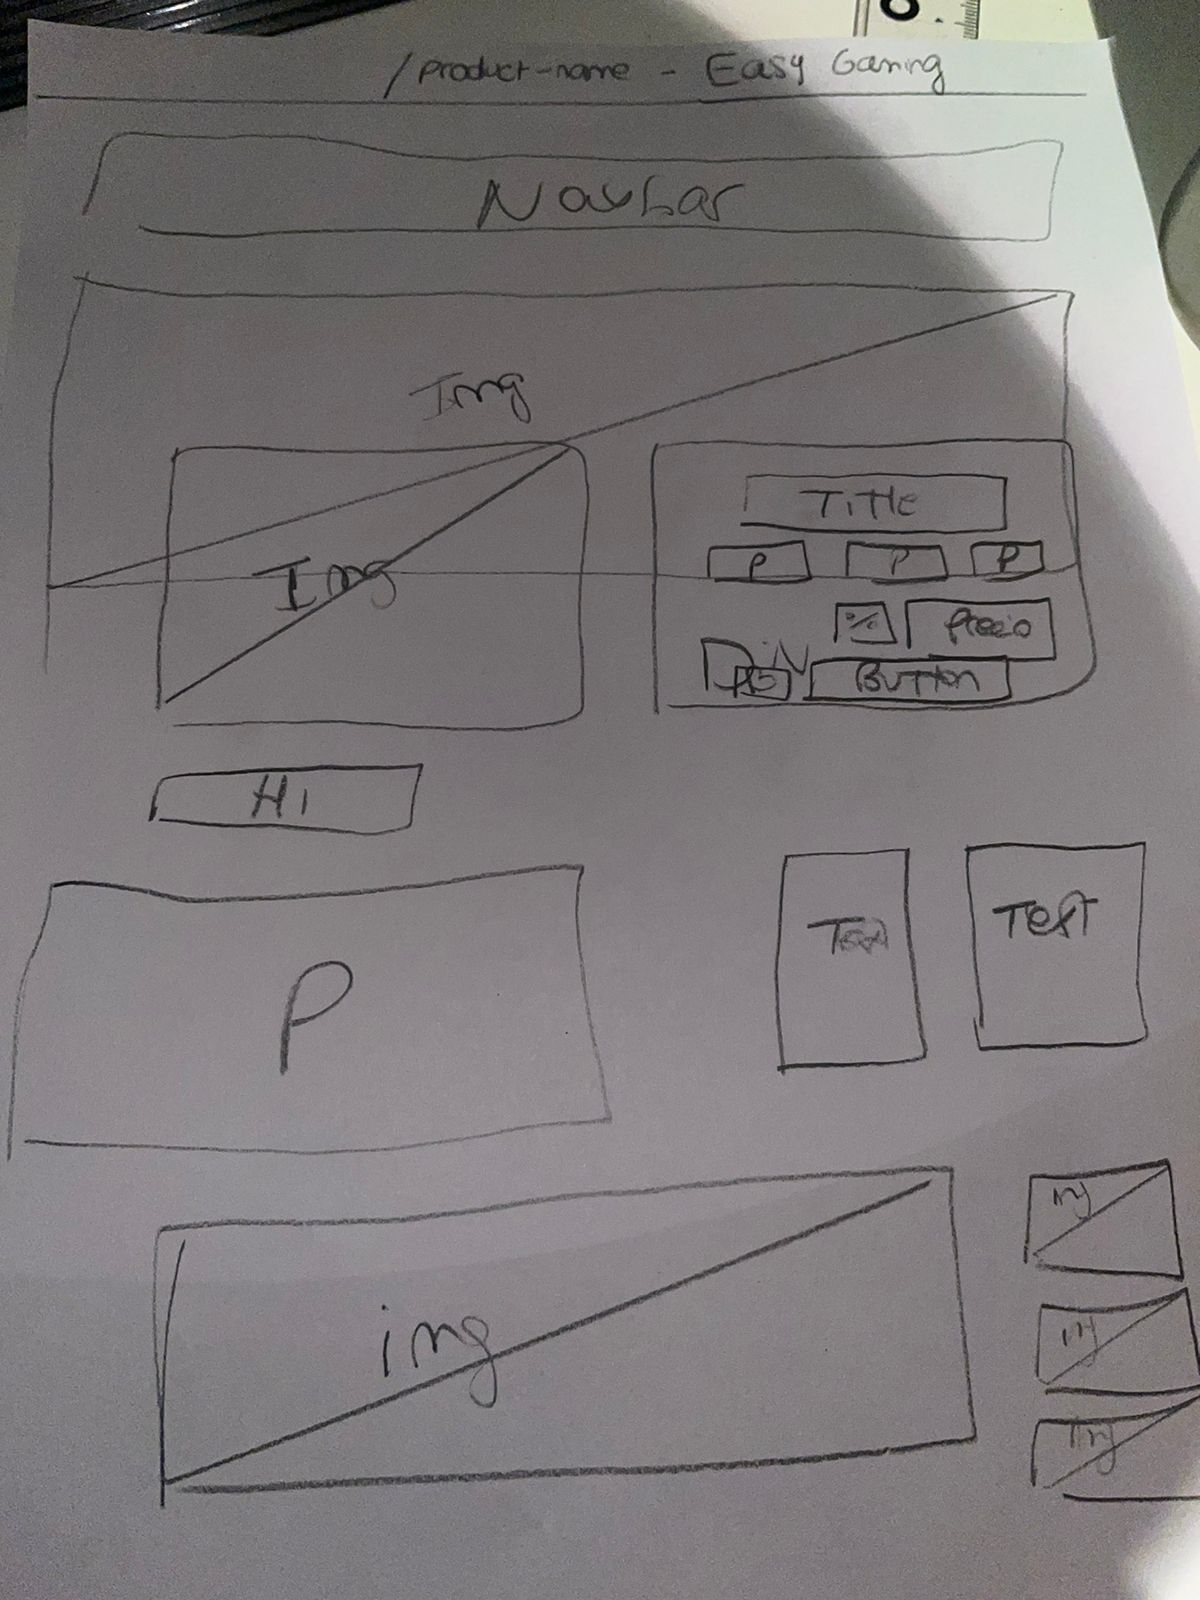 /product-name - Easy Gaming
Navbar
Img
Img
Title
P P P
%
Div
Button
H1
P
Text
img
img
img
img